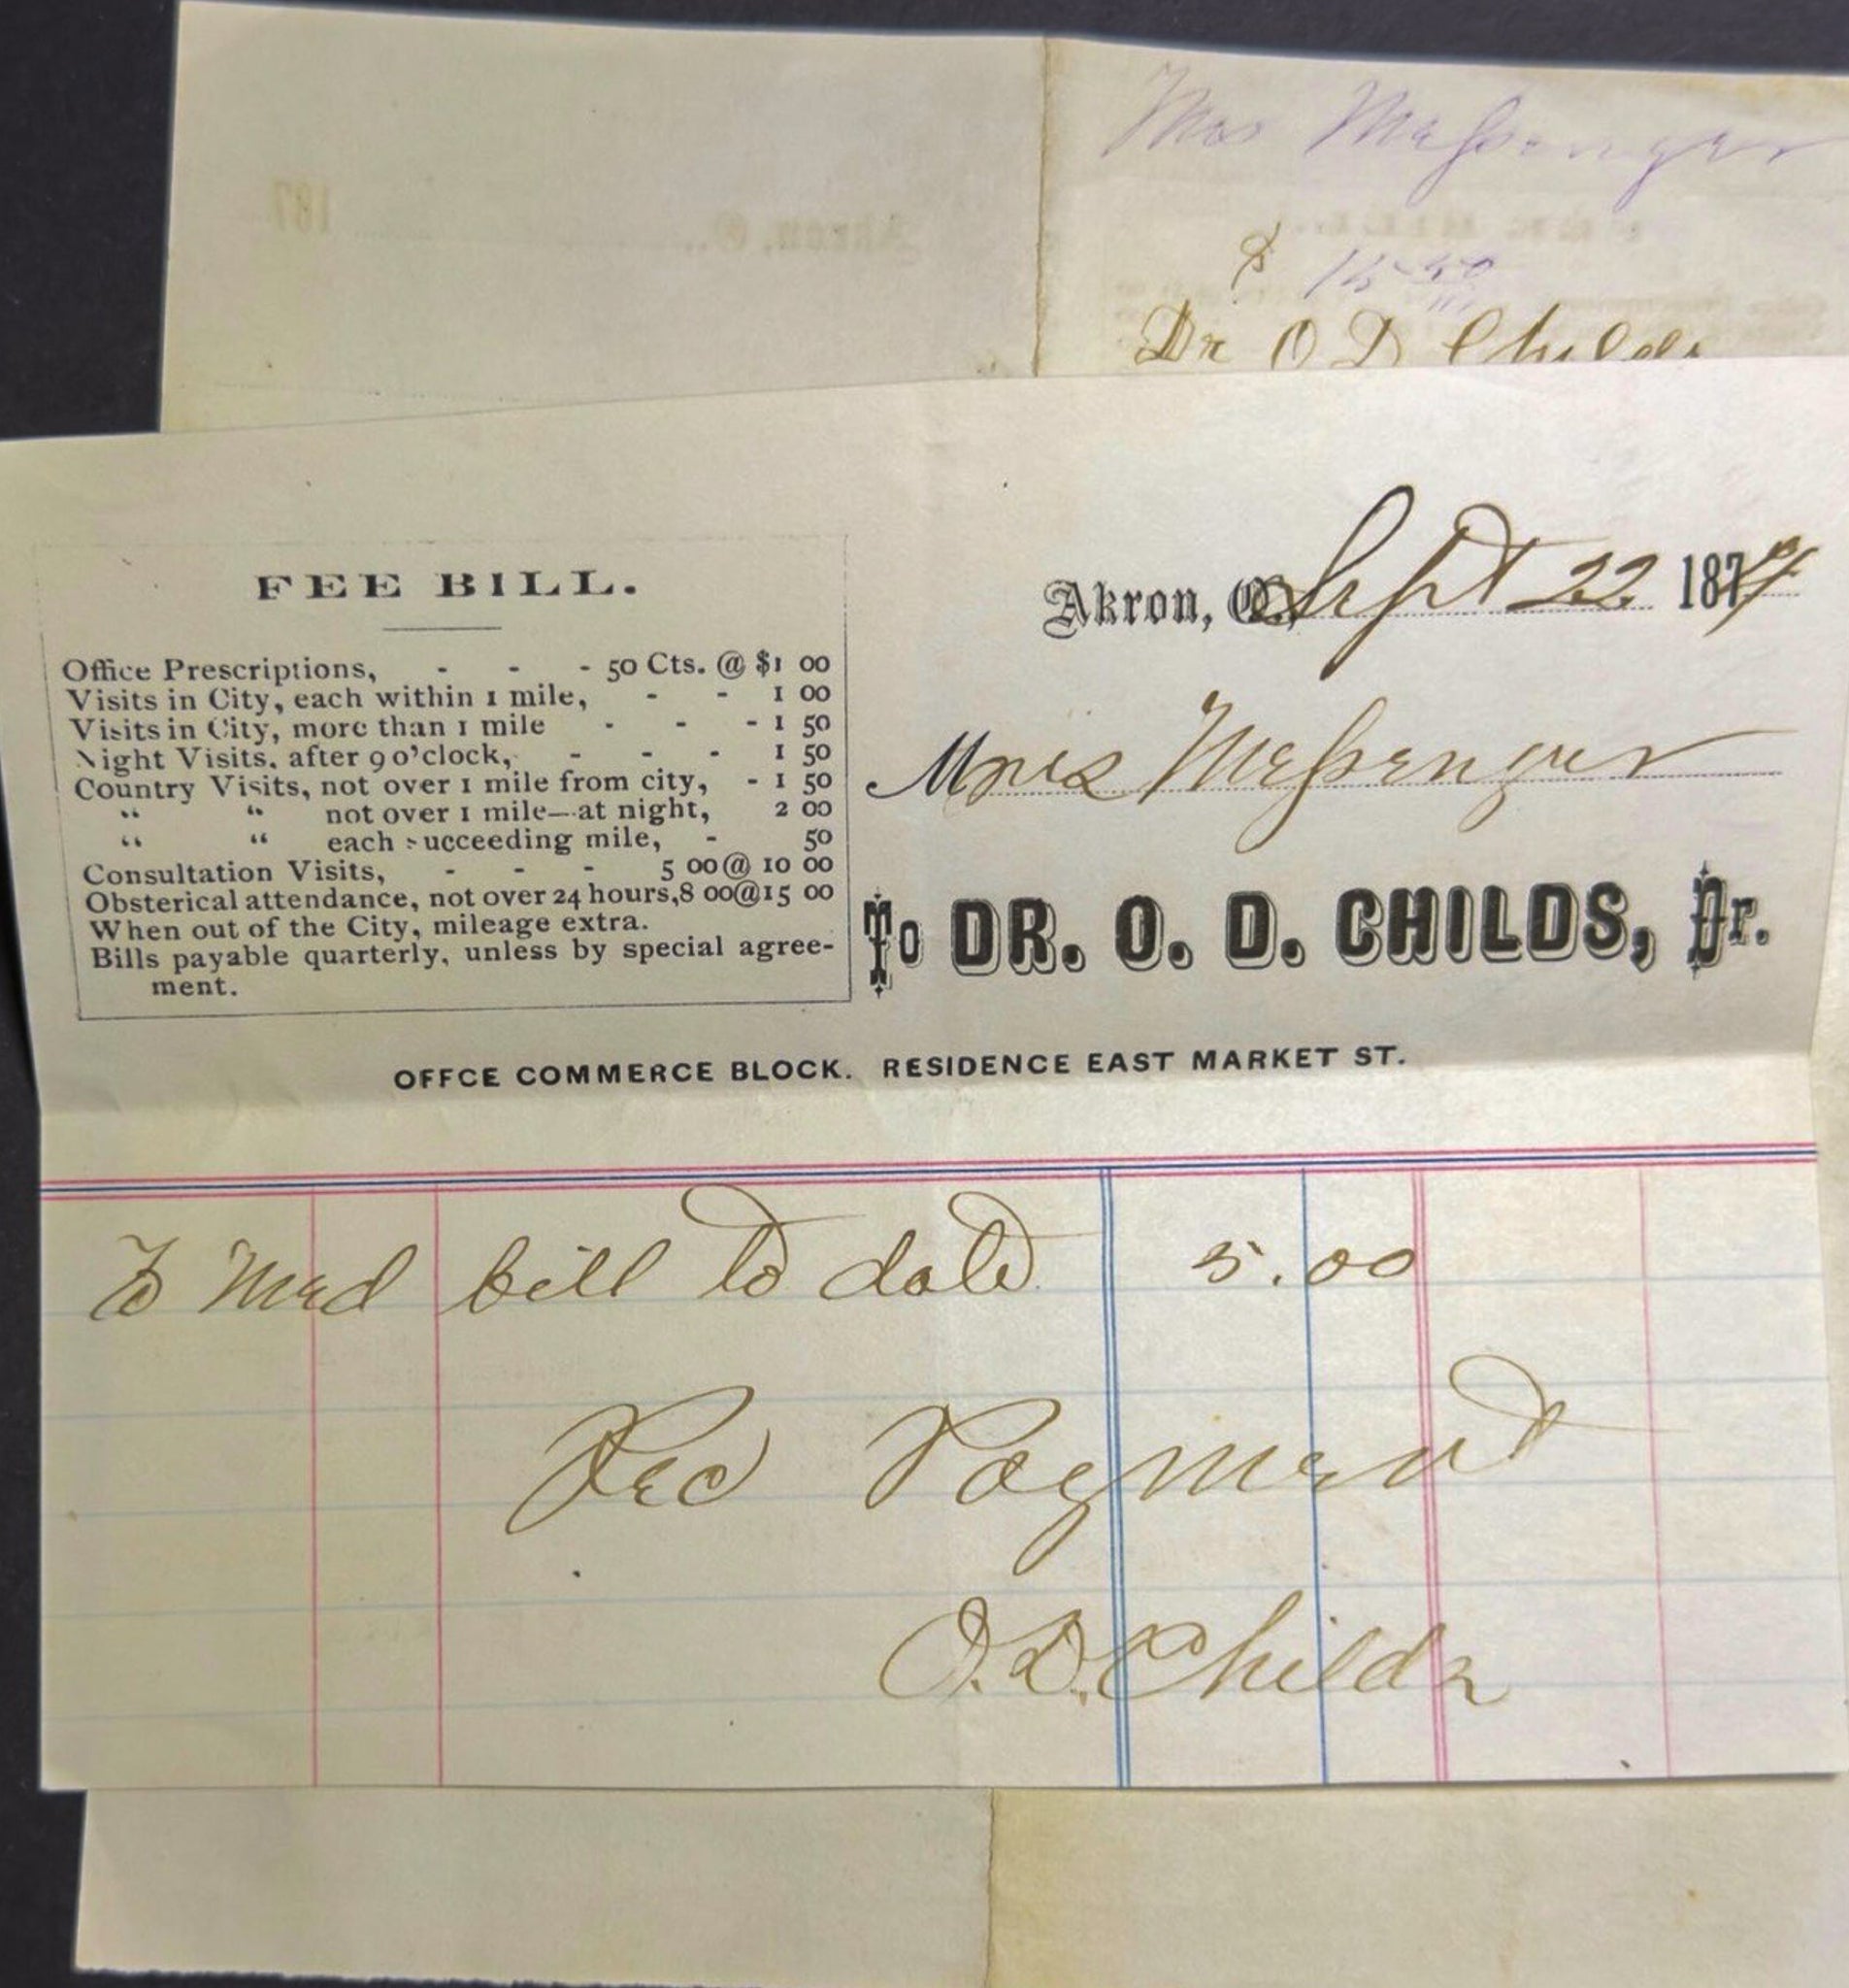 Mrs Messenger
$ 15 50
Dr O D Childs
187
Akron, O.
FEE BILL.
Office Prescriptions, - - - 50 Cts. @ $1 00
Visits in City, each within 1 mile, - - 1 00
Visits in City, more than 1 mile - - - 1 50
Night Visits. after 9 o'clock, - - - 1 50
Country Visits, not over 1 mile from city, - 1 50
“ “ not over 1 mile—at night, 2 00
“ “ each succeeding mile, - 50
Consultation Visits, - - - 5 00 @ 10 00
Obsterical attendance, not over 24 hours, 8 00@15 00
When out of the City, mileage extra.
Bills payable quarterly, unless by special agree-
ment.
Akron, O., Sept 22 187
Mrs Messenger
To DR. O. D. CHILDS, Dr.
OFFCE COMMERCE BLOCK. RESIDENCE EAST MARKET ST.
To Med bill to date 5.00
Rec Payment
O.D. Childs